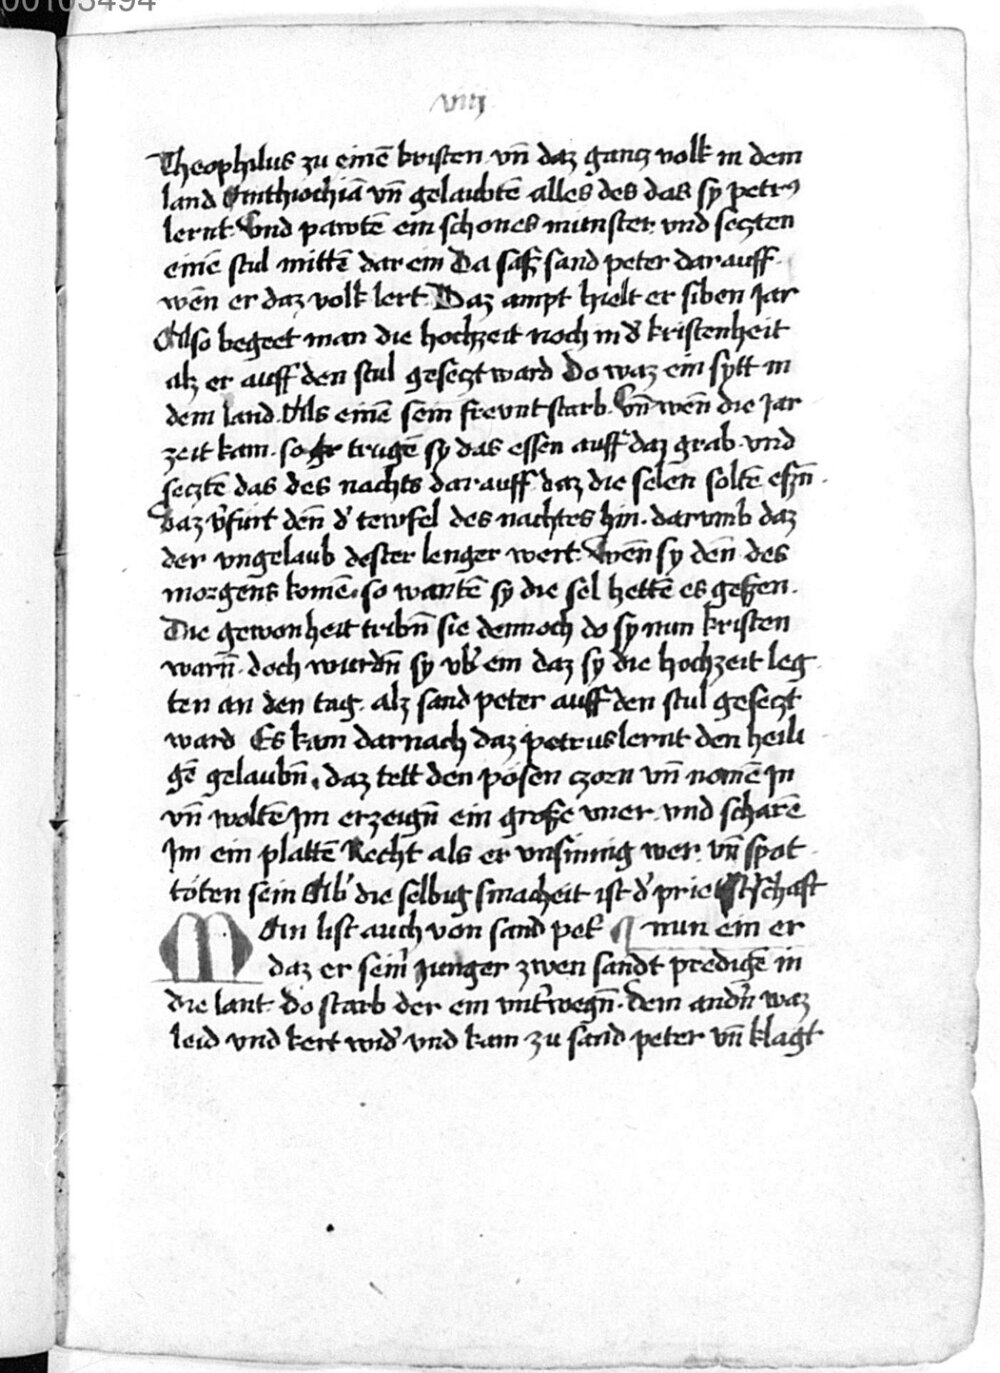 00103494
viiij
Theophilus zu einē kristen vn̄ daz gancz volk in dem
land Anthiochiā vn̄ gelaubtē alles des das sy petrꝰ
lernt. Vnd pawtē ein schones munster vnd seczten
einē stul mittē dar ein Da saß sand peter darauff
wēn er daz volk lert. Daz ampt hielt er siben Jar
Also begeet man die hochzeit noch in d' kristenheit
alz er auff den stul gesetzt ward Do waz ein sytt in
dem land. Als einē sein freunt starb. Vn̄ wēn die Jar
zeit kam. so trugē sy das essen auff daz grab. vnd
seczte das des nachts darauff daz die selen soltē eßn̄.
Daz v'furt den̄ d' tewfel des nachtes hin. darumb daz
der vngelaub dester lenger wert. Wēn sy den̄ des
morgens komē. so wantē sy die sel hettē es geßen.
Die gewonheit tribn̄ sie dennoch do sy nun kristen
warn̄. doch wurdn̄ sy vb' ein daz sy die hochzeit leg
ten an den tag. alz sand peter auff den stul gesetzt
ward Es kam darnach daz petrus lernt den heili
gē gelaubn̄. daz tett den pösen czorn vn̄ nomē In
vn̄ woltē Im erzeign̄ ein große vner. vnd scharē
Im ein plattē Recht als er vnsinnig wer. vn̄ spot
toten sein Ab' die selbug smacheit ist d' priesterschaft
Man list auch von sand pet' ¶ nun ein er
daz er sein' Junger zwen sandt predigē in
die lant. do starb der ein vnt'wegn̄. dem andn̄ waz
leid vnd kert wid' vnd kam zu sand peter vn̄ klagt